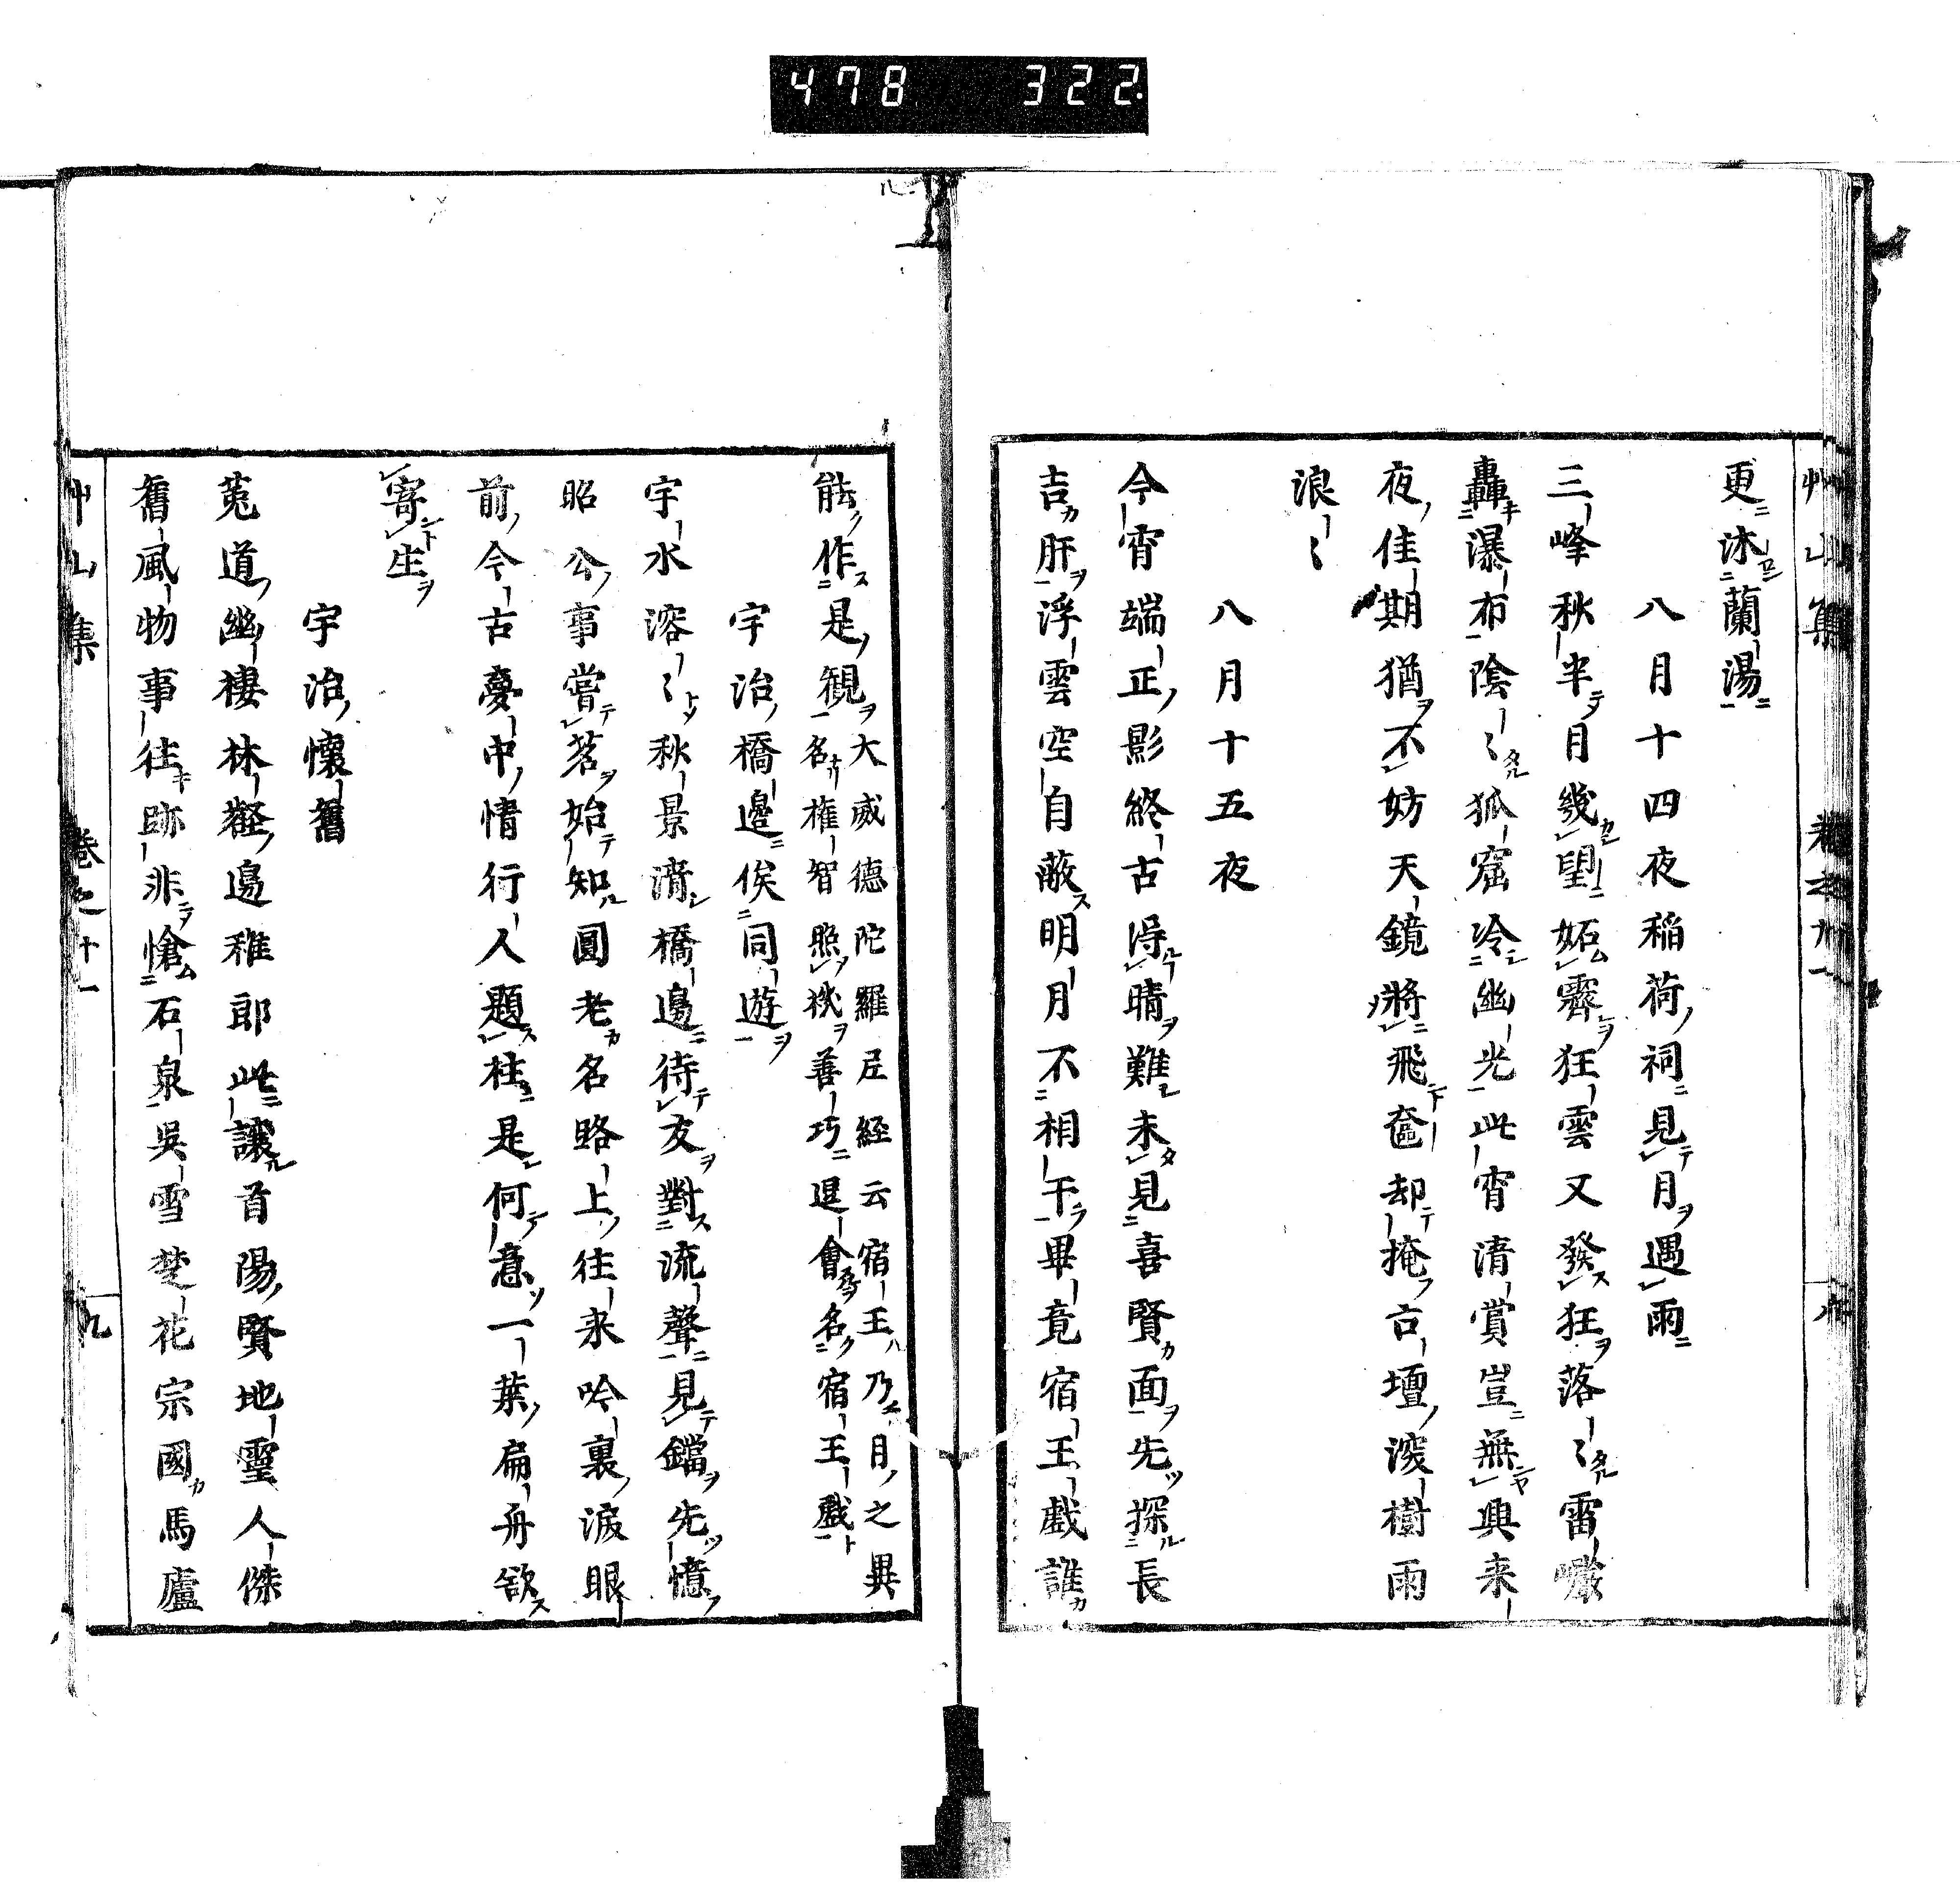 478 322.
更沐蘭湯
八月十四夜稲荷祠見月遇雨
三峰秋半月幾望妬霽狂雲又發狂落〻雷
轟瀑布陰〻狐窟冷幽光此宵清賞豈無興来
夜佳期猶不妨天鏡將飛奩却掩古壇深樹雨
浪〻
八月十五夜
今宵端正影終古得晴難未見喜賢面先探長
吉肝浮雲空自蔽明月不相干畢竟宿王戲誰
能作是観
大威德陀羅尼経云宿王乃月之異
名権智照機善巧退會名宿王戲
宇治橋邉俟同遊
宇水溶〻秋景清橋邉待友對流聲見鐺先憶
昭公事嘗茗始知圓老名路上往来吟裏涙眼
前今古夢中情行人題柱是何意一葉扁舟欲
寄生
宇治懷舊
菟道幽棲林壑邉稚郎此讓首陽賢地靈人傑
舊風物事往跡非愴石泉吳雪楚花宗國馬廬
艸山集 卷之十一 九